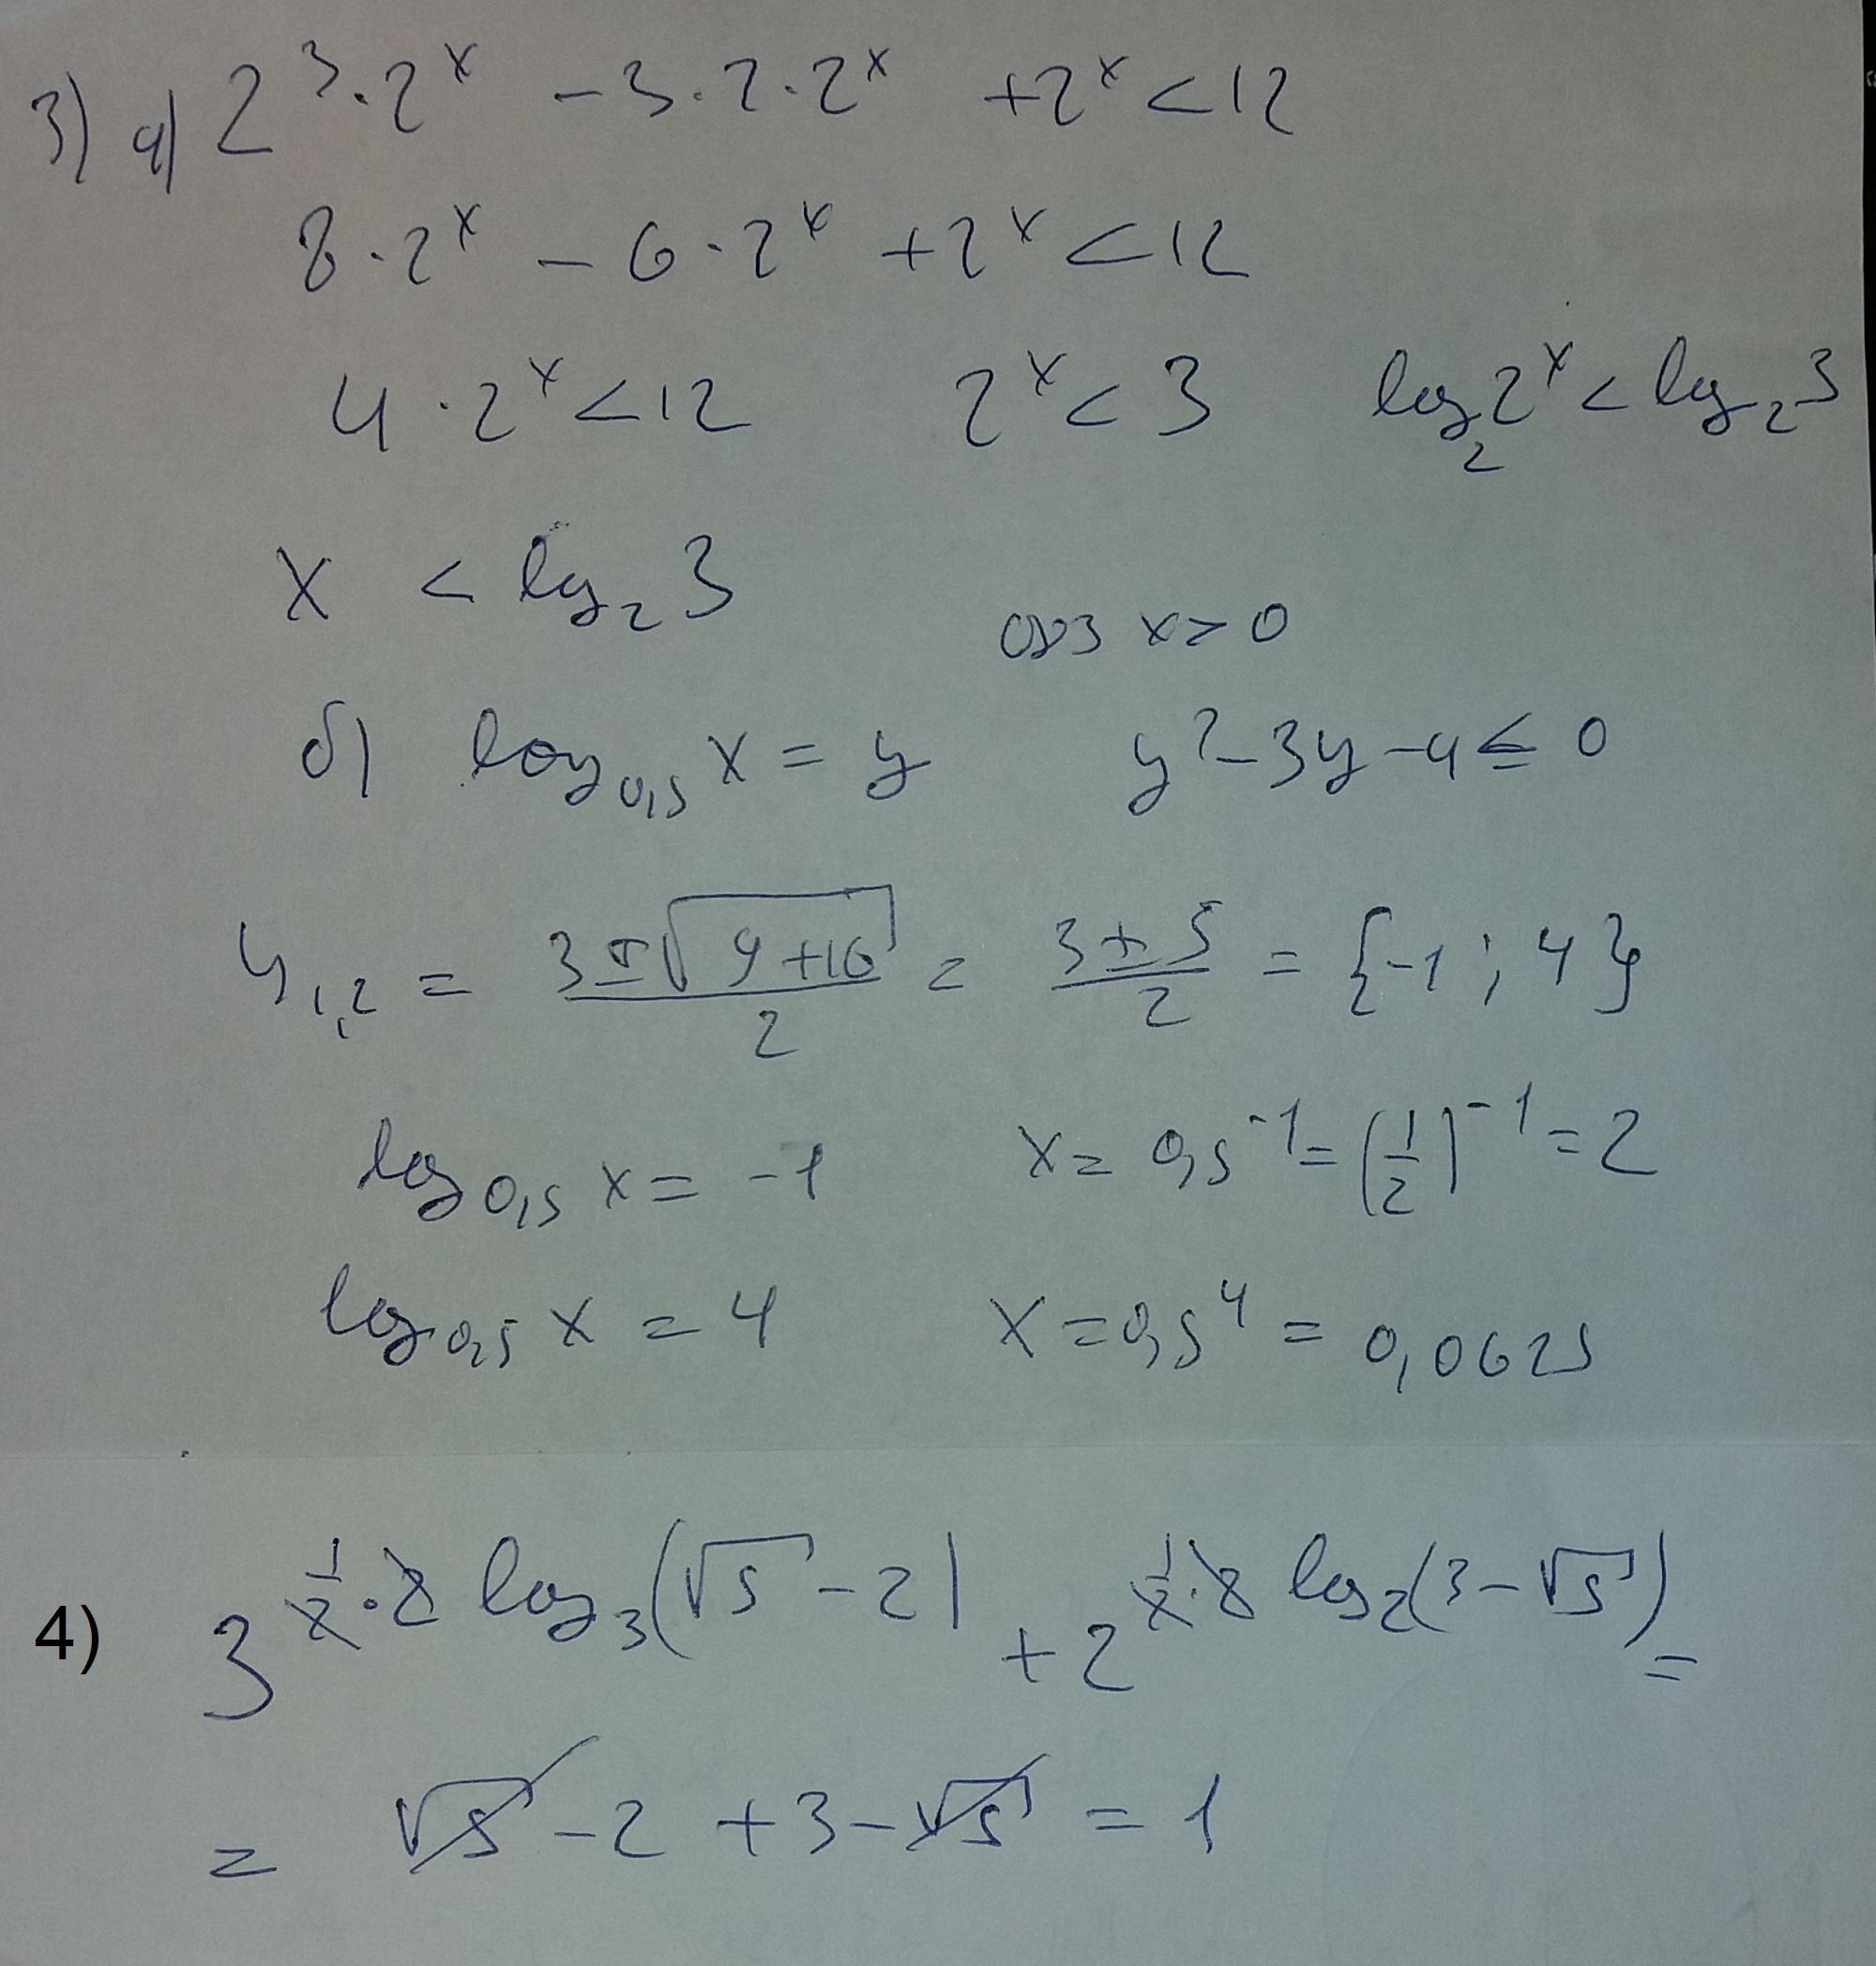 3) а) 2³·2ˣ - 3·2·2ˣ + 2ˣ < 12
8·2ˣ - 6·2ˣ + 2ˣ < 12
4·2ˣ < 12 2ˣ < 3 log₂2ˣ < log₂3
x < log₂3
ОДЗ x > 0
б) log₀,₅ x = y y² - 3y - 4 ≤ 0
y₁,₂ = (3 ± √(9+16))/2 = (3 ± 5)/2 = {-1; 4}
log₀,₅ x = -1 x = 0,5⁻¹ = (1/2)⁻¹ = 2
log₀,₅ x = 4 x = 0,5⁴ = 0,0625
4) 3^(1/2·2 log₃(√5 - 2)) + 2^(1/2·2 log₂(3 - √5)) =
= √5 - 2 + 3 - √5 = 1